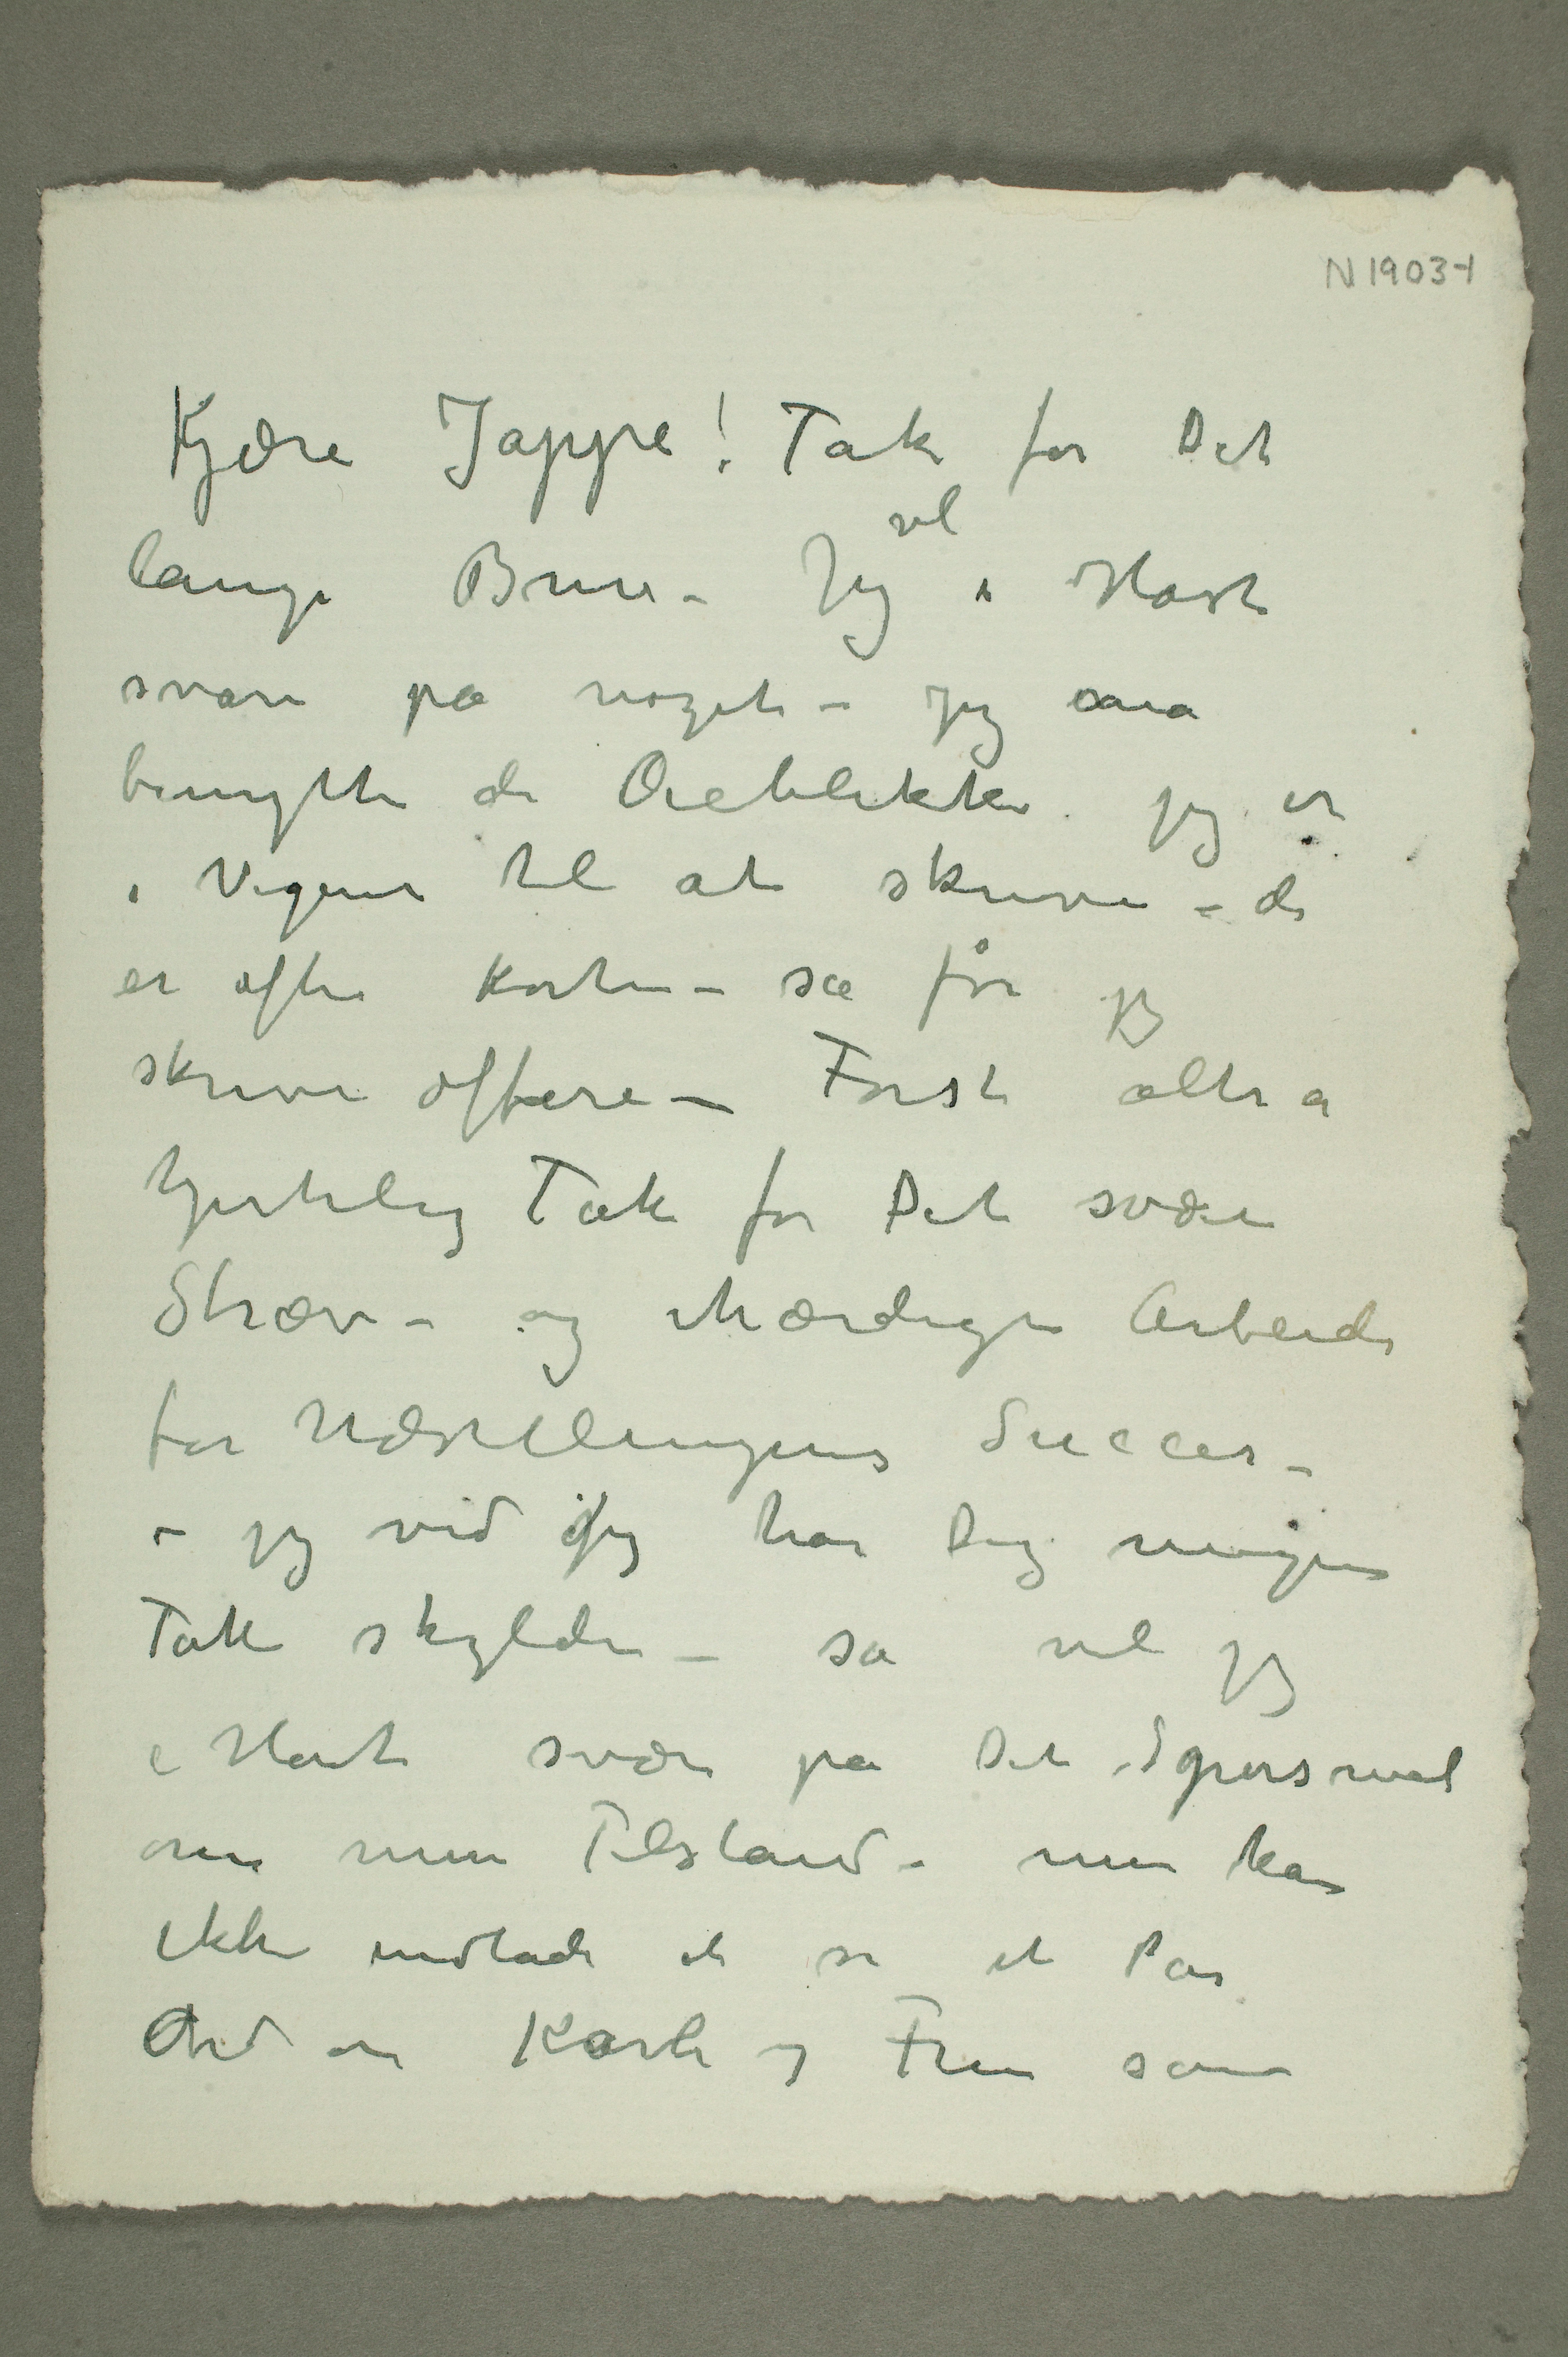 N 1903-1
Kjære Jappe! Tak for Dit
lange Brev – Jeg vil i Hast
svare på noget – jeg må
benytte de Øieblikke jeg er
i Vigeur til at skrive – de
er ofte korte – så får jeg
skrive oftere – Først altså
hjertelig Tak for Dit svære
Stræv – og ihærdige Arbeide
for Udstillingens Succes –
– jeg ved jeg har Dig megen
Tak skylde – så vil jeg
i Hast svare på Dit Spørsmål
om min Tilstand – men kan
ikke undlade at si et Par
Ord om Karl og Fru som